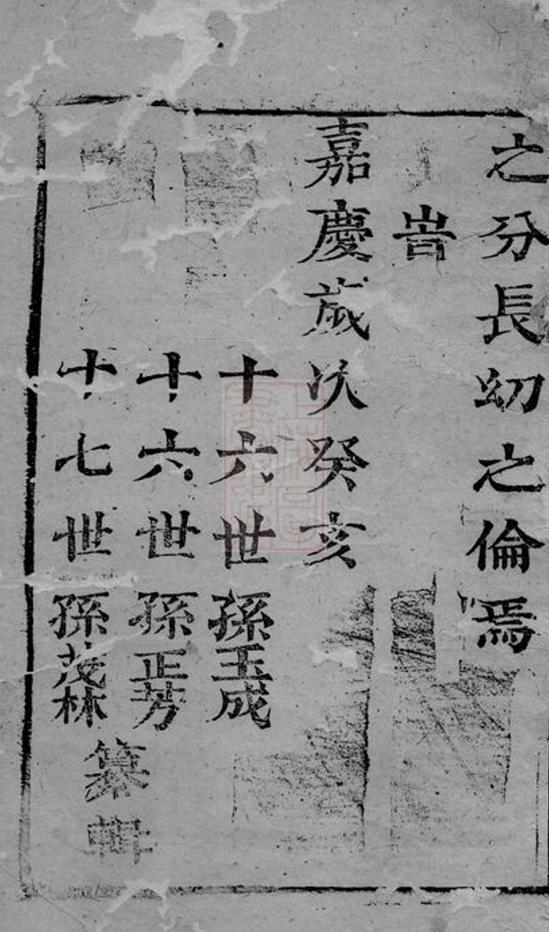 之分長幼之倫焉
旹
嘉慶歲次癸亥
十六世孫玉成
十六世孫正芳
十七世孫茂林
纂輯